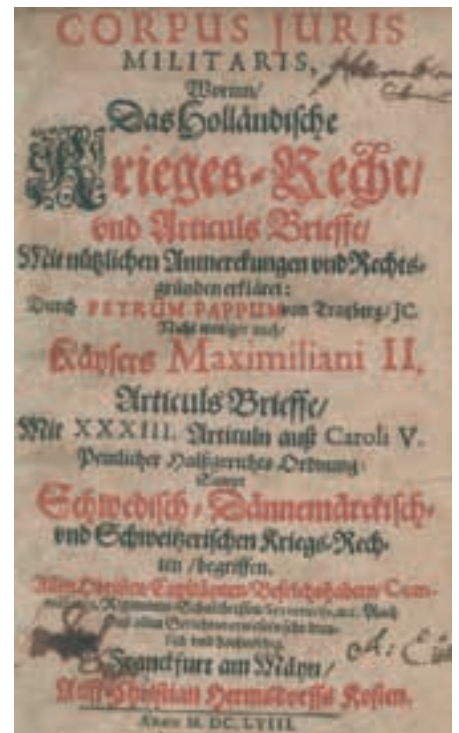 CORPUS JURIS
MILITARIS,
Worinn/
Das Holländische
Krieges-Recht/
vnd Articuls Brieffe/
Mit nützlichen Anmerckungen vnd Rechts-
gründen erkläret:
Durch PETRUM PAPPUM von Tratzberg/ JC.
Nicht weniger auch/
Käysers Maximiliani II.
Articuls Brieffe/
Mit XXXIII. Articuln auß Caroli V.
Peinlicher Halßgerichts-Ordnung/
Sampt
Schwedisch-Dännemärckisch-
vnd Schweitzerischen Kriegs-Rech-
ten/ begriffen.
Allen Obristen/ Capitänen/ Befelchshabern/ Com-
Regiments-Schultheissen/
vnd allen
lich vnd
Franckfurt am Mäyn/
Auff Christian Hermsdorffs Kosten.
Anno M. DC. LVIII.